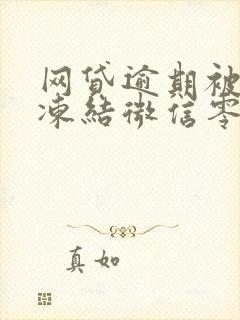 网贷逾期被
凍結微信零
真如